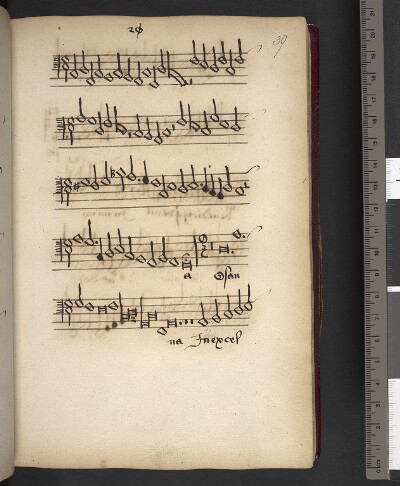 39
a Osan
na Inexcel